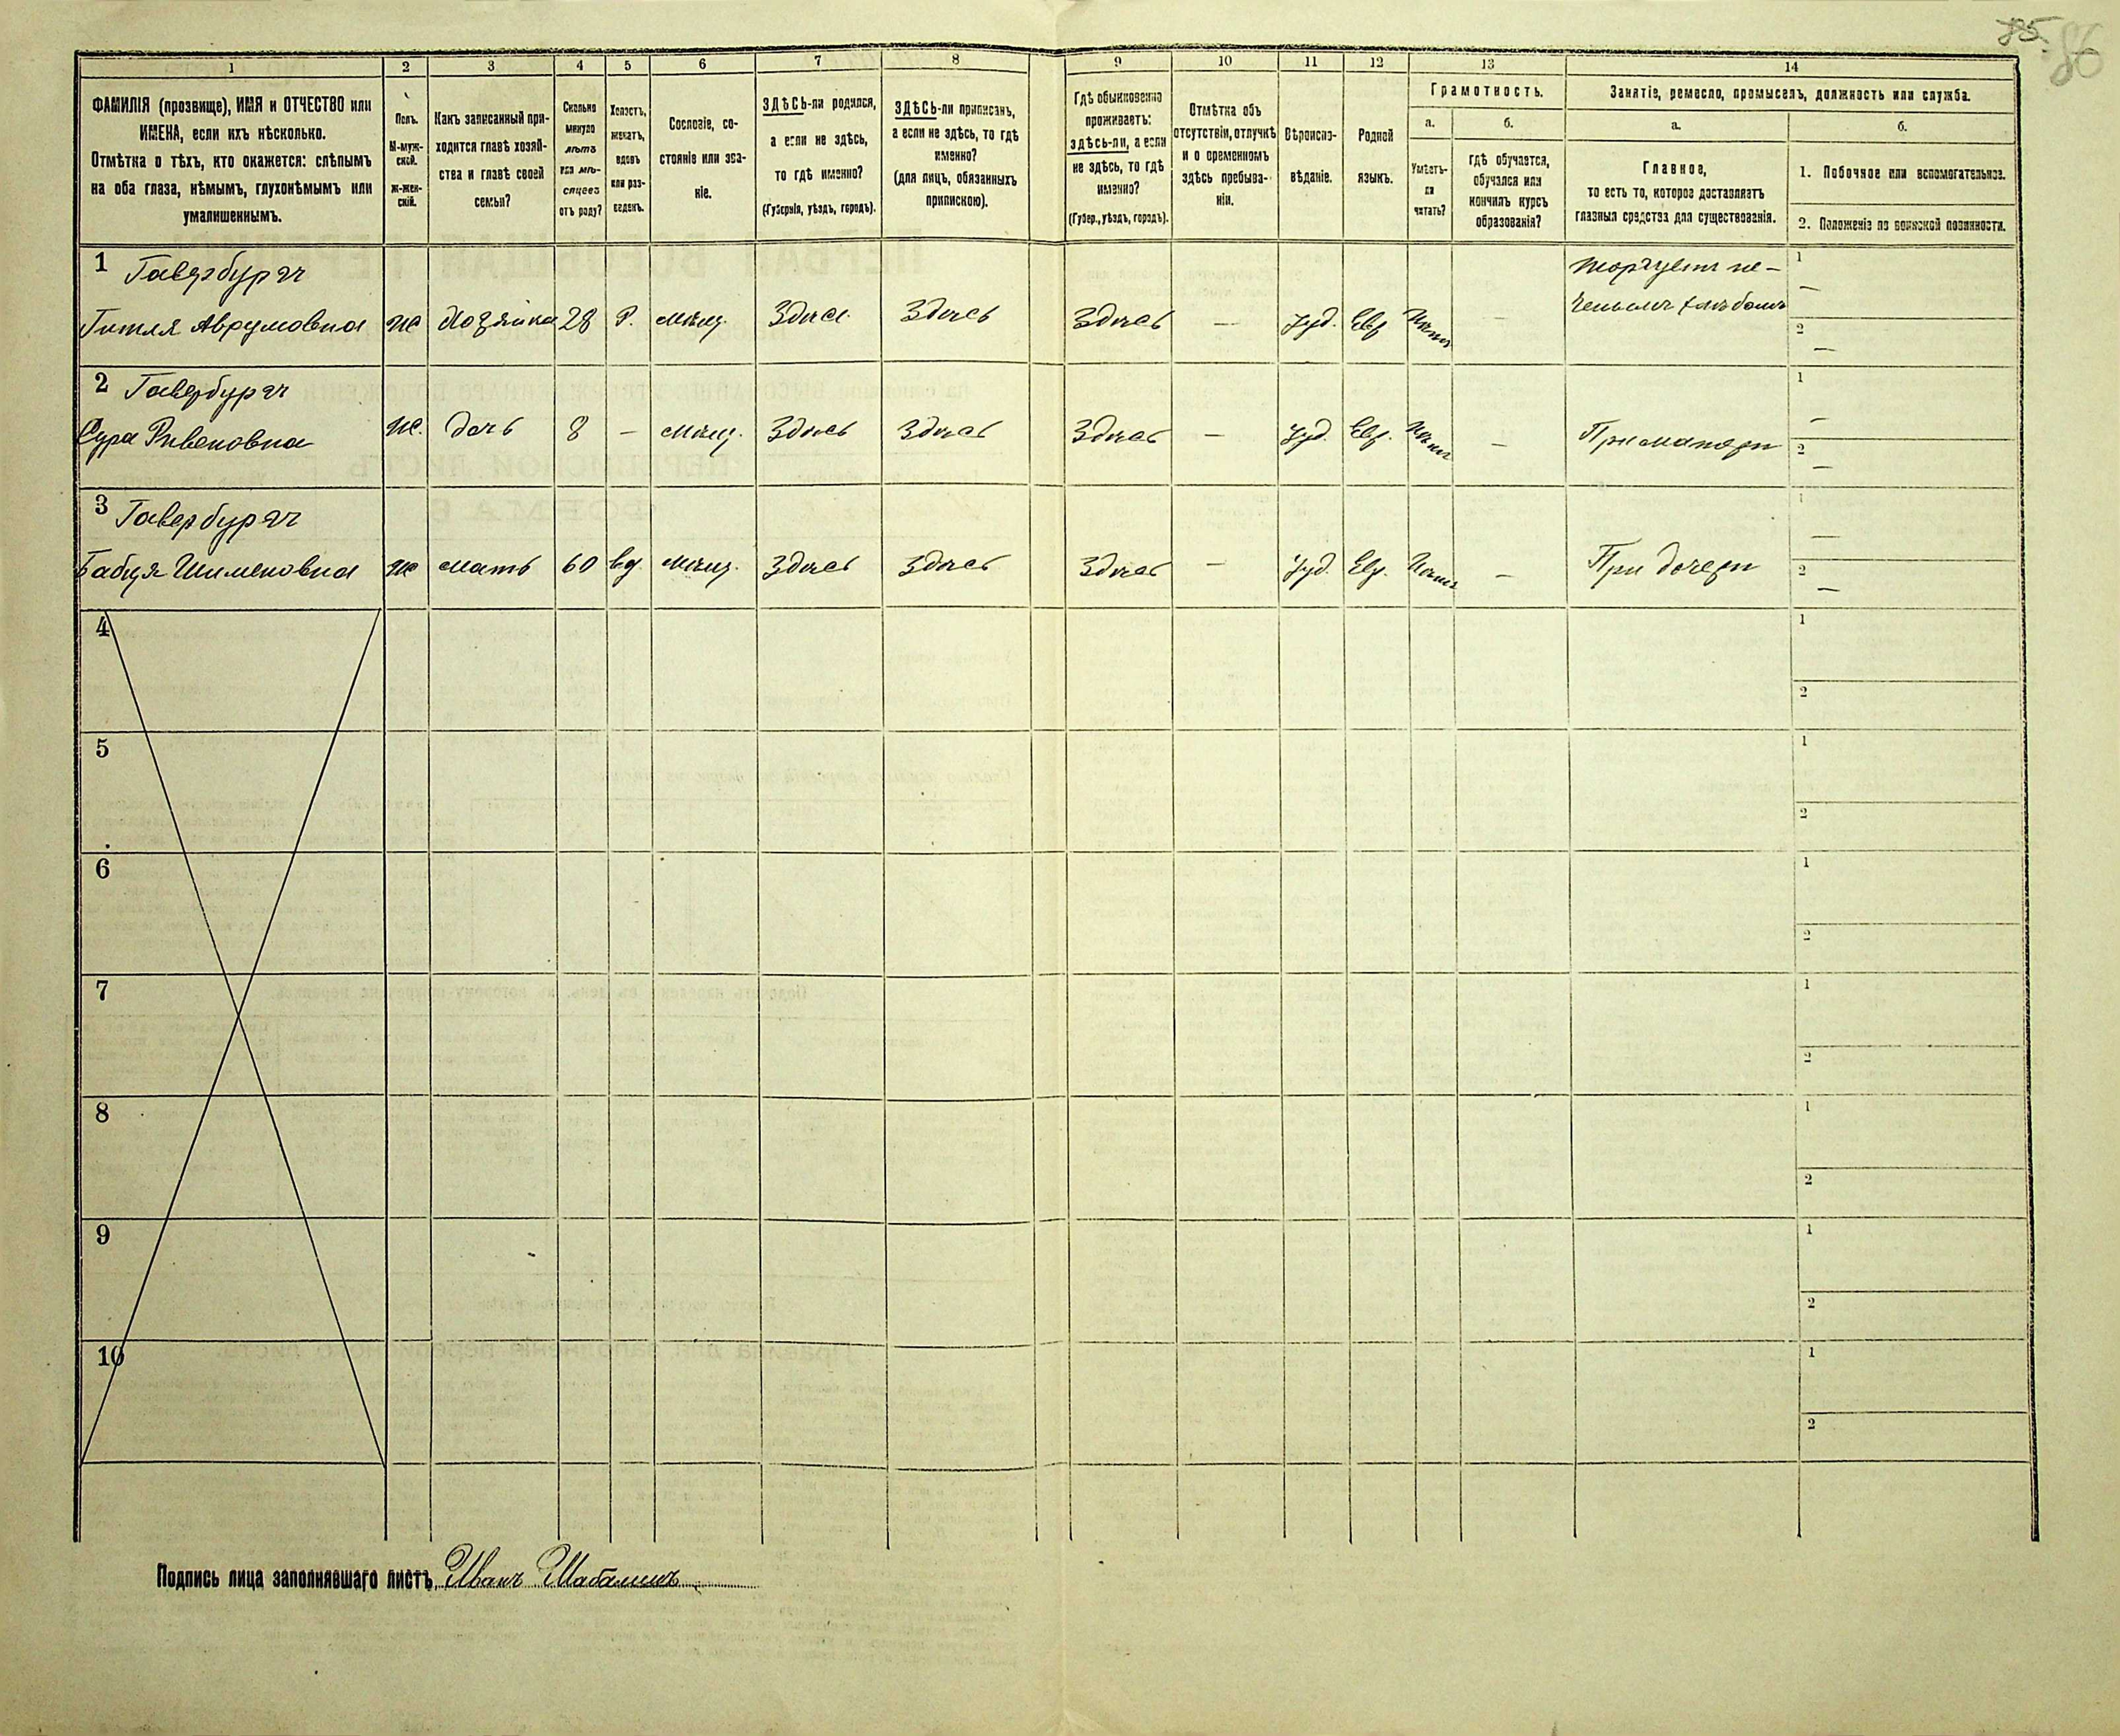 85. 86
1 2 3 4 5 6 7 8 9 10 11 12 13 14
ФАМИЛІЯ (прозвище), ИМЯ и ОТЧЕСТВО или
ИМЕНА, если ихъ нѣсколько.
Отмѣтка о тѣхъ, кто окажется: слѣпымъ
на оба глаза, нѣмымъ, глухонѣмымъ или
умалишеннымъ.
Полъ.
М-муж-
ской.
Ж-жен-
скій.
Какъ записанный при-
ходится главѣ хозяй-
ства и главѣ своей
семьи?
Сколько
минуло
лѣтъ
или мѣ-
сяцевъ
отъ роду?
Холостъ,
женатъ,
вдовъ
или раз-
веденъ.
Сословіе, со-
стояніе или зва-
ніе.
ЗДѢСЬ-ли родился,
а если не здѣсь,
то гдѣ именно?
(Губернія, уѣздъ, городъ).
ЗДѢСЬ-ли приписанъ,
а если не здѣсь, то гдѣ
именно?
(для лицъ, обязанныхъ
припискою).
Гдѣ обыкновенно
проживаетъ:
здѣсь-ли, а если
не здѣсь, то гдѣ
именно?
(Губер., уѣздъ, городъ).
Отмѣтка объ
отсутствіи, отлучкѣ
и о временномъ
здѣсь пребыва-
ніи.
Вѣроиспо-
вѣданіе.
Родной
языкъ.
Грамотность.
а.
Умѣетъ-
ли
читать?
б.
гдѣ обучается,
обучался или
кончилъ курсъ
образованія?
Занятіе, ремесло, промыселъ, должность или служба.
а.
Главное,
то есть то, которое доставляетъ
главныя средства для существованія.
б.
1. Побочное или вспомогательное.
2. Положеніе по воинской повинности.
1 Говербурдъ Торгуетъ пе- 1 —
Гитля Аврумовна ж Хозяйка 28 Р. мѣщ. Здѣсь Здѣсь Здѣсь — Іуд. Евр. ченымъ хлѣбомъ 2 —
2 1 —
Сура Ривеновна ж. дочь 8 — мѣщ. Здѣсь Здѣсь Здѣсь — Іуд. Евр. — При матери 2 —
3 1 —
Шимоновна ж мать 60 вд. мѣщ. Здѣсь Здѣсь Здѣсь — Іуд. Евр. — При дочери 2 —
4 1
2
5 1
2
6 1
2
7 1
2
8 1
2
9 1
2
10 1
2
Подпись лица заполнявшаго листъ Иванъ Шабалинъ